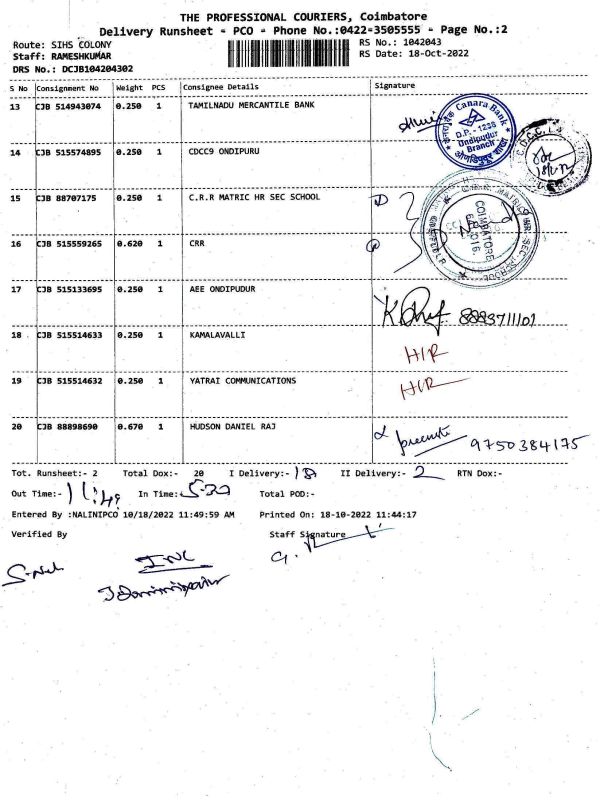 THE PROFESSIONAL COURIERS, Coimbatore
Delivery Runsheet - PCO - Phone No.:0422-3505555 - Page No.:2
Route: SIHS COLONY
RS No.: 1042043
Staff: RAMESHKUMAR
RS Date: 18-Oct-2022
DRS No.: DCJB104204302
S No Consignment No Weight PCS Consignee Details Signature
13 CJB 514943074 0.250 1 TAMILNADU MERCANTILE BANK
Canara Bank
D.P. - 1238
Ondipudur
Branch
14 CJB 515574895 0.250 1 CDCC9 ONDIPURU
15 CJB 88707175 0.250 1 C.R.R MATRIC HR SEC SCHOOL
COIMBATORE
16 CJB 515559265 0.620 1 CRR
17 CJB 515133695 0.250 1 AEE ONDIPUDUR
8883711101
18 CJB 515514633 0.250 1 KAMALAVALLI
H/R
19 CJB 515514632 0.250 1 YATRAI COMMUNICATIONS
H/R
20 CJB 88898690 0.670 1 HUDSON DANIEL RAJ
9750384175
Tot. Runsheet:- 2 Total Dox:- 20 I Delivery:- 18 II Delivery:- 2 RTN Dox:-
Out Time:- 11:49 In Time:- 5-30 Total POD:-
Entered By :NALINIPCO 10/18/2022 11:49:59 AM Printed On: 18-10-2022 11:44:17
Verified By Staff Signature